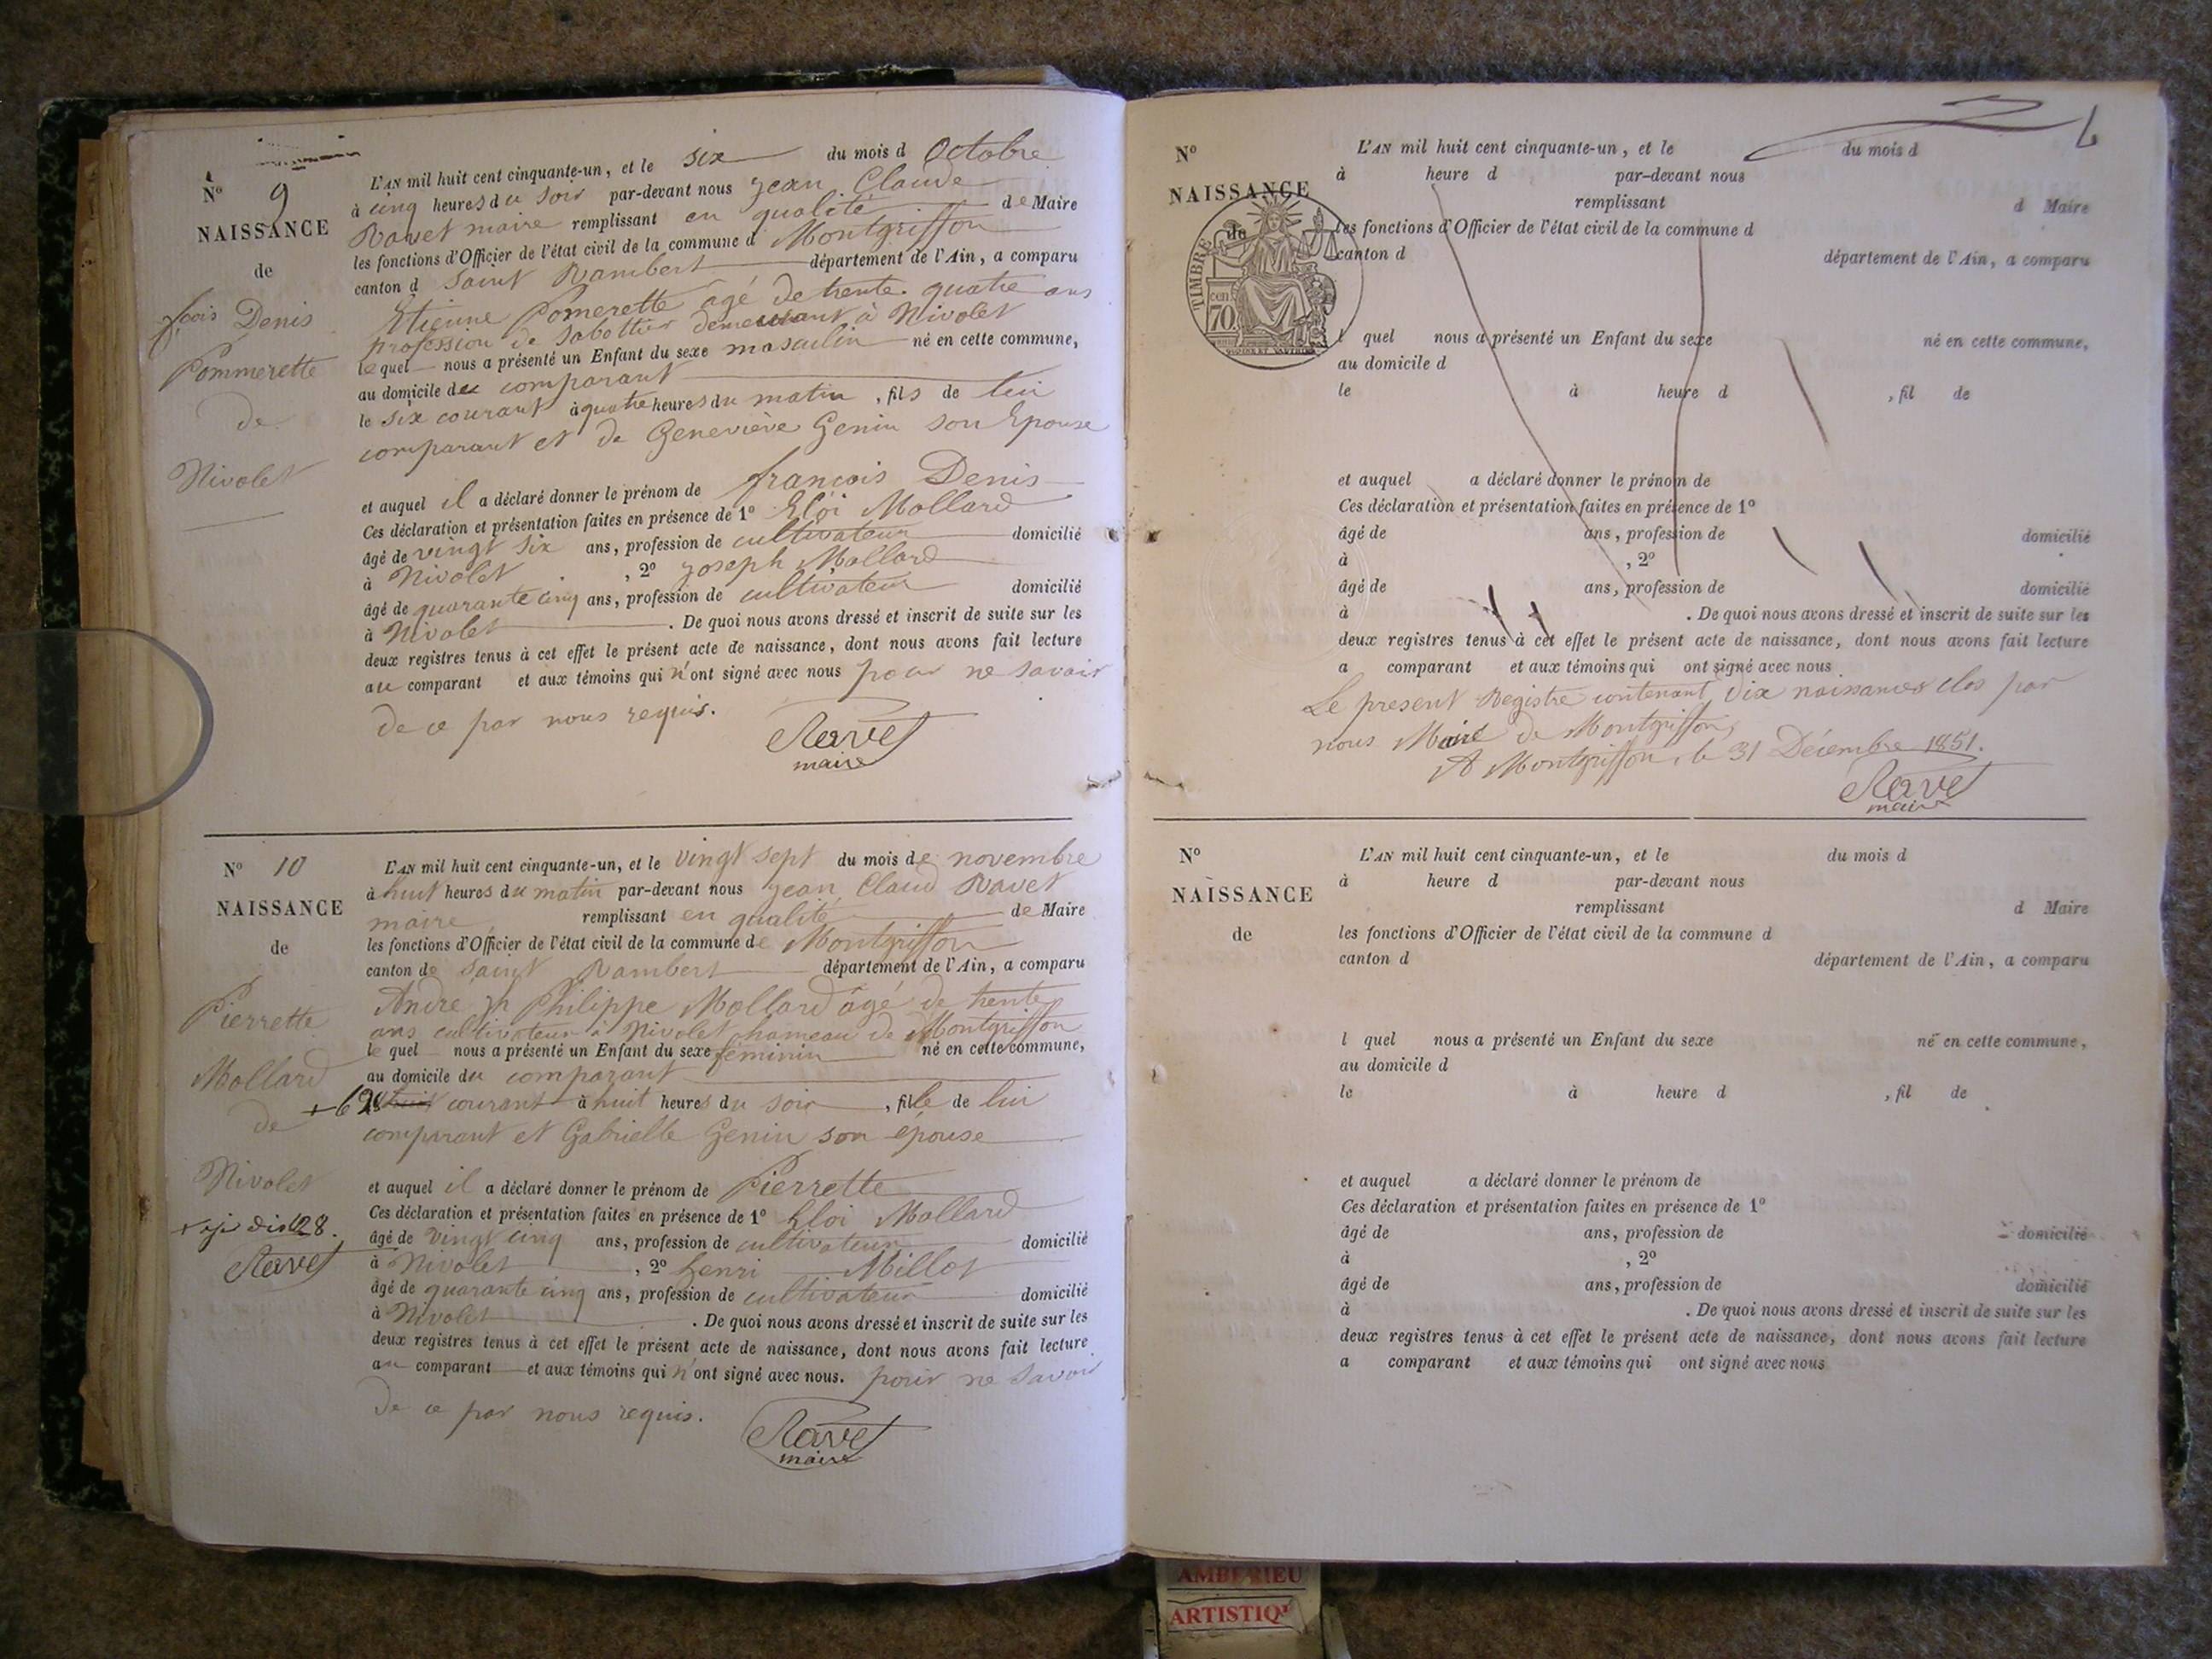 L'AN mil huit cent cinquante-un, et le six du mois d Octobre
N° 9
à cinq heures du soir par-devant nous Jean Claude
NAISSANCE
Ravet maire remplissant en qualité de Maire
les fonctions d'Officier de l'état civil de la commune d Montgriffon
de
canton d Saint Rambert département de l'Ain, a comparu
fcois Denis
Etienne Pomerette âgé de trente quatre ans
profession de Sabottier demeurant à Nivolet
Pommerette
le quel nous a présenté un Enfant du sexe masculin né en cette commune,
au domicile du comparant
de
le six courant à quatre heures du matin, fils de lui
comparant et de Geneviève Genin son Epouse
Nivolet
et auquel il a déclaré donner le prénom de françois Denis
Ces déclaration et présentation faites en présence de 1° Eloi Mollard
âgé de vingt six ans, profession de cultivateur domicilié
à Nivolet, 2° Joseph Mollard
âgé de quarante cinq ans, profession de cultivateur domicilié
à Nivolet. De quoi nous avons dressé et inscrit de suite sur les
deux registres tenus à cet effet le présent acte de naissance, dont nous avons fait lecture
au comparant et aux témoins qui n'ont signé avec nous pour ne savoir
de ce par nous requis.
Ravet
maire
N° 10
L'AN mil huit cent cinquante-un, et le vingt sept du mois de novembre
à huit heures du matin par-devant nous Jean Claud Ravet
NAISSANCE
maire remplissant en qualité de Maire
les fonctions d'Officier de l'état civil de la commune de Montgriffon
de
canton de Saint Rambert département de l'Ain, a comparu
Pierrette
André Philippe Mollard âgé de trente
ans cultivateur à Nivolet hameau de Montgriffon
le quel nous a présenté un Enfant du sexe féminin né en cette commune,
Mollard
au domicile du comparant
courant à huit heures du soir, fille de lui
de
comparant et Gabrielle Genin son épouse
Nivolet
et auquel il a déclaré donner le prénom de Pierrette
Ces déclaration et présentation faites en présence de 1° Eloi Mollard
28.
âgé de vingt cinq ans, profession de cultivateur domicilié
Ravet
à Nivolet, 2° henri Millot
âgé de quarante cinq ans, profession de cultivateur domicilié
à Nivolet. De quoi nous avons dressé et inscrit de suite sur les
deux registres tenus à cet effet le présent acte de naissance, dont nous avons fait lecture
au comparant et aux témoins qui n'ont signé avec nous. pour ne savoir
de ce par nous requis.
Ravet
maire
N° L'AN mil huit cent cinquante-un, et le du mois d
à heure d par-devant nous
NAISSANCE
remplissant d Maire
de
les fonctions d'Officier de l'état civil de la commune d
canton d département de l'Ain, a comparu
TIMBRE
cen
70
l quel nous a présenté un Enfant du sexe né en cette commune,
au domicile d
le à heure d , fil de
et auquel a déclaré donner le prénom de
Ces déclaration et présentation faites en présence de 1°
âgé de ans, profession de domicilié
à , 2°
âgé de ans, profession de domicilié
à . De quoi nous avons dressé et inscrit de suite sur les
deux registres tenus à cet effet le présent acte de naissance, dont nous avons fait lecture
a comparant et aux témoins qui ont signé avec nous
Le present Registre contenant dix naissances clos par
nous Maire de Montgriffon,
A Montgriffon, le 31 Décembre 1851.
Ravet
maire
N° L'AN mil huit cent cinquante-un, et le du mois d
à heure d par-devant nous
NAISSANCE
remplissant d Maire
de les fonctions d'Officier de l'état civil de la commune d
canton d département de l'Ain, a comparu
l quel nous a présenté un Enfant du sexe né en cette commune,
au domicile d
le à heure d , fil de
et auquel a déclaré donner le prénom de
Ces déclaration et présentation faites en présence de 1°
âgé de ans, profession de domicilié
à , 2°
âgé de ans, profession de domicilié
à . De quoi nous avons dressé et inscrit de suite sur les
deux registres tenus à cet effet le présent acte de naissance, dont nous avons fait lecture
a comparant et aux témoins qui ont signé avec nous
AMBERIEU
ARTISTIQ